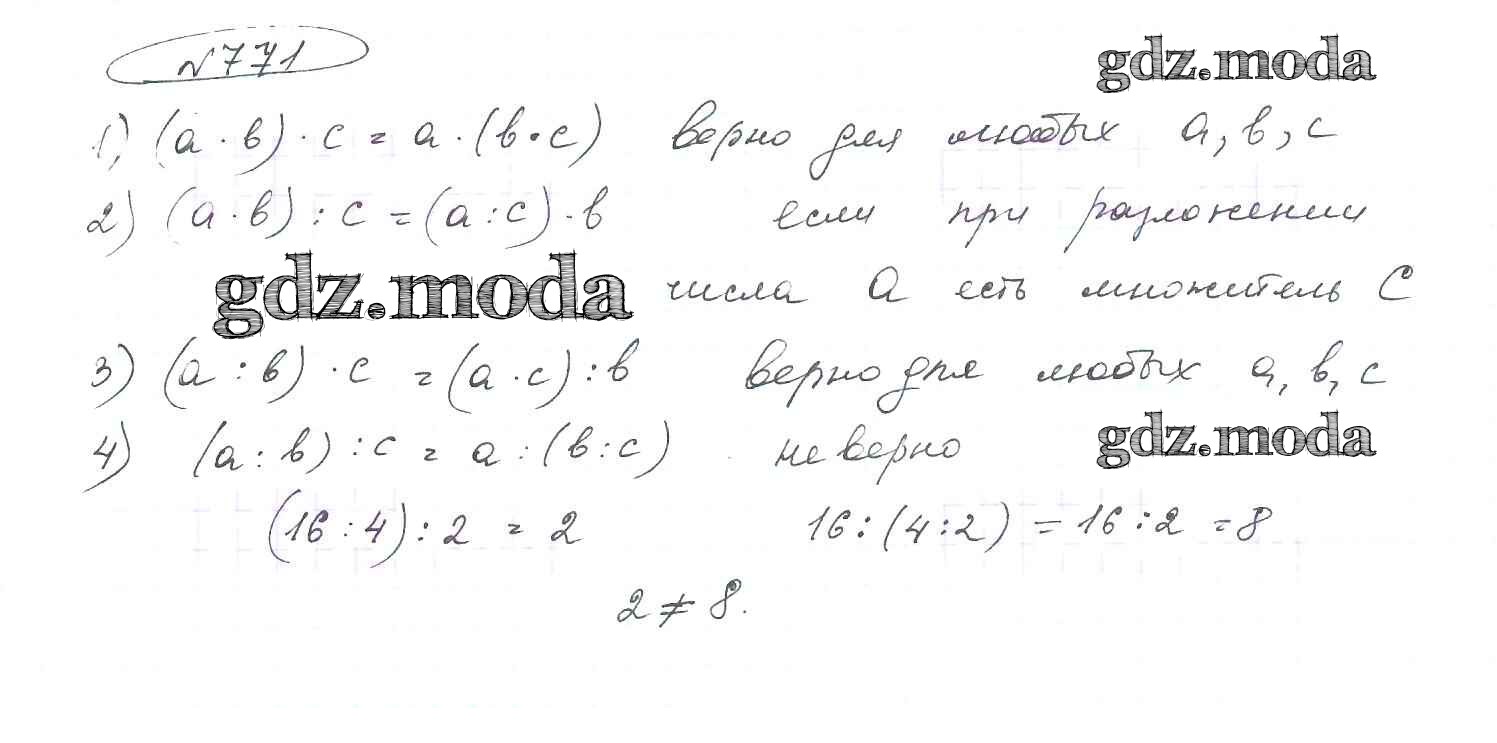 №771
gdz.moda
1) (a · b) · c = a · (b · c) верно для любых a, b, c
2) (a · b) : c = (a : c) · b если при разложении
gdz.moda числа a есть множитель C
3) (a : b) · c = (a · c) : b верно для любых a, b, c
4) (a : b) : c = a : (b : c) неверно
gdz.moda
(16 : 4) : 2 = 2 16 : (4 : 2) = 16 : 2 = 8
2 ≠ 8.